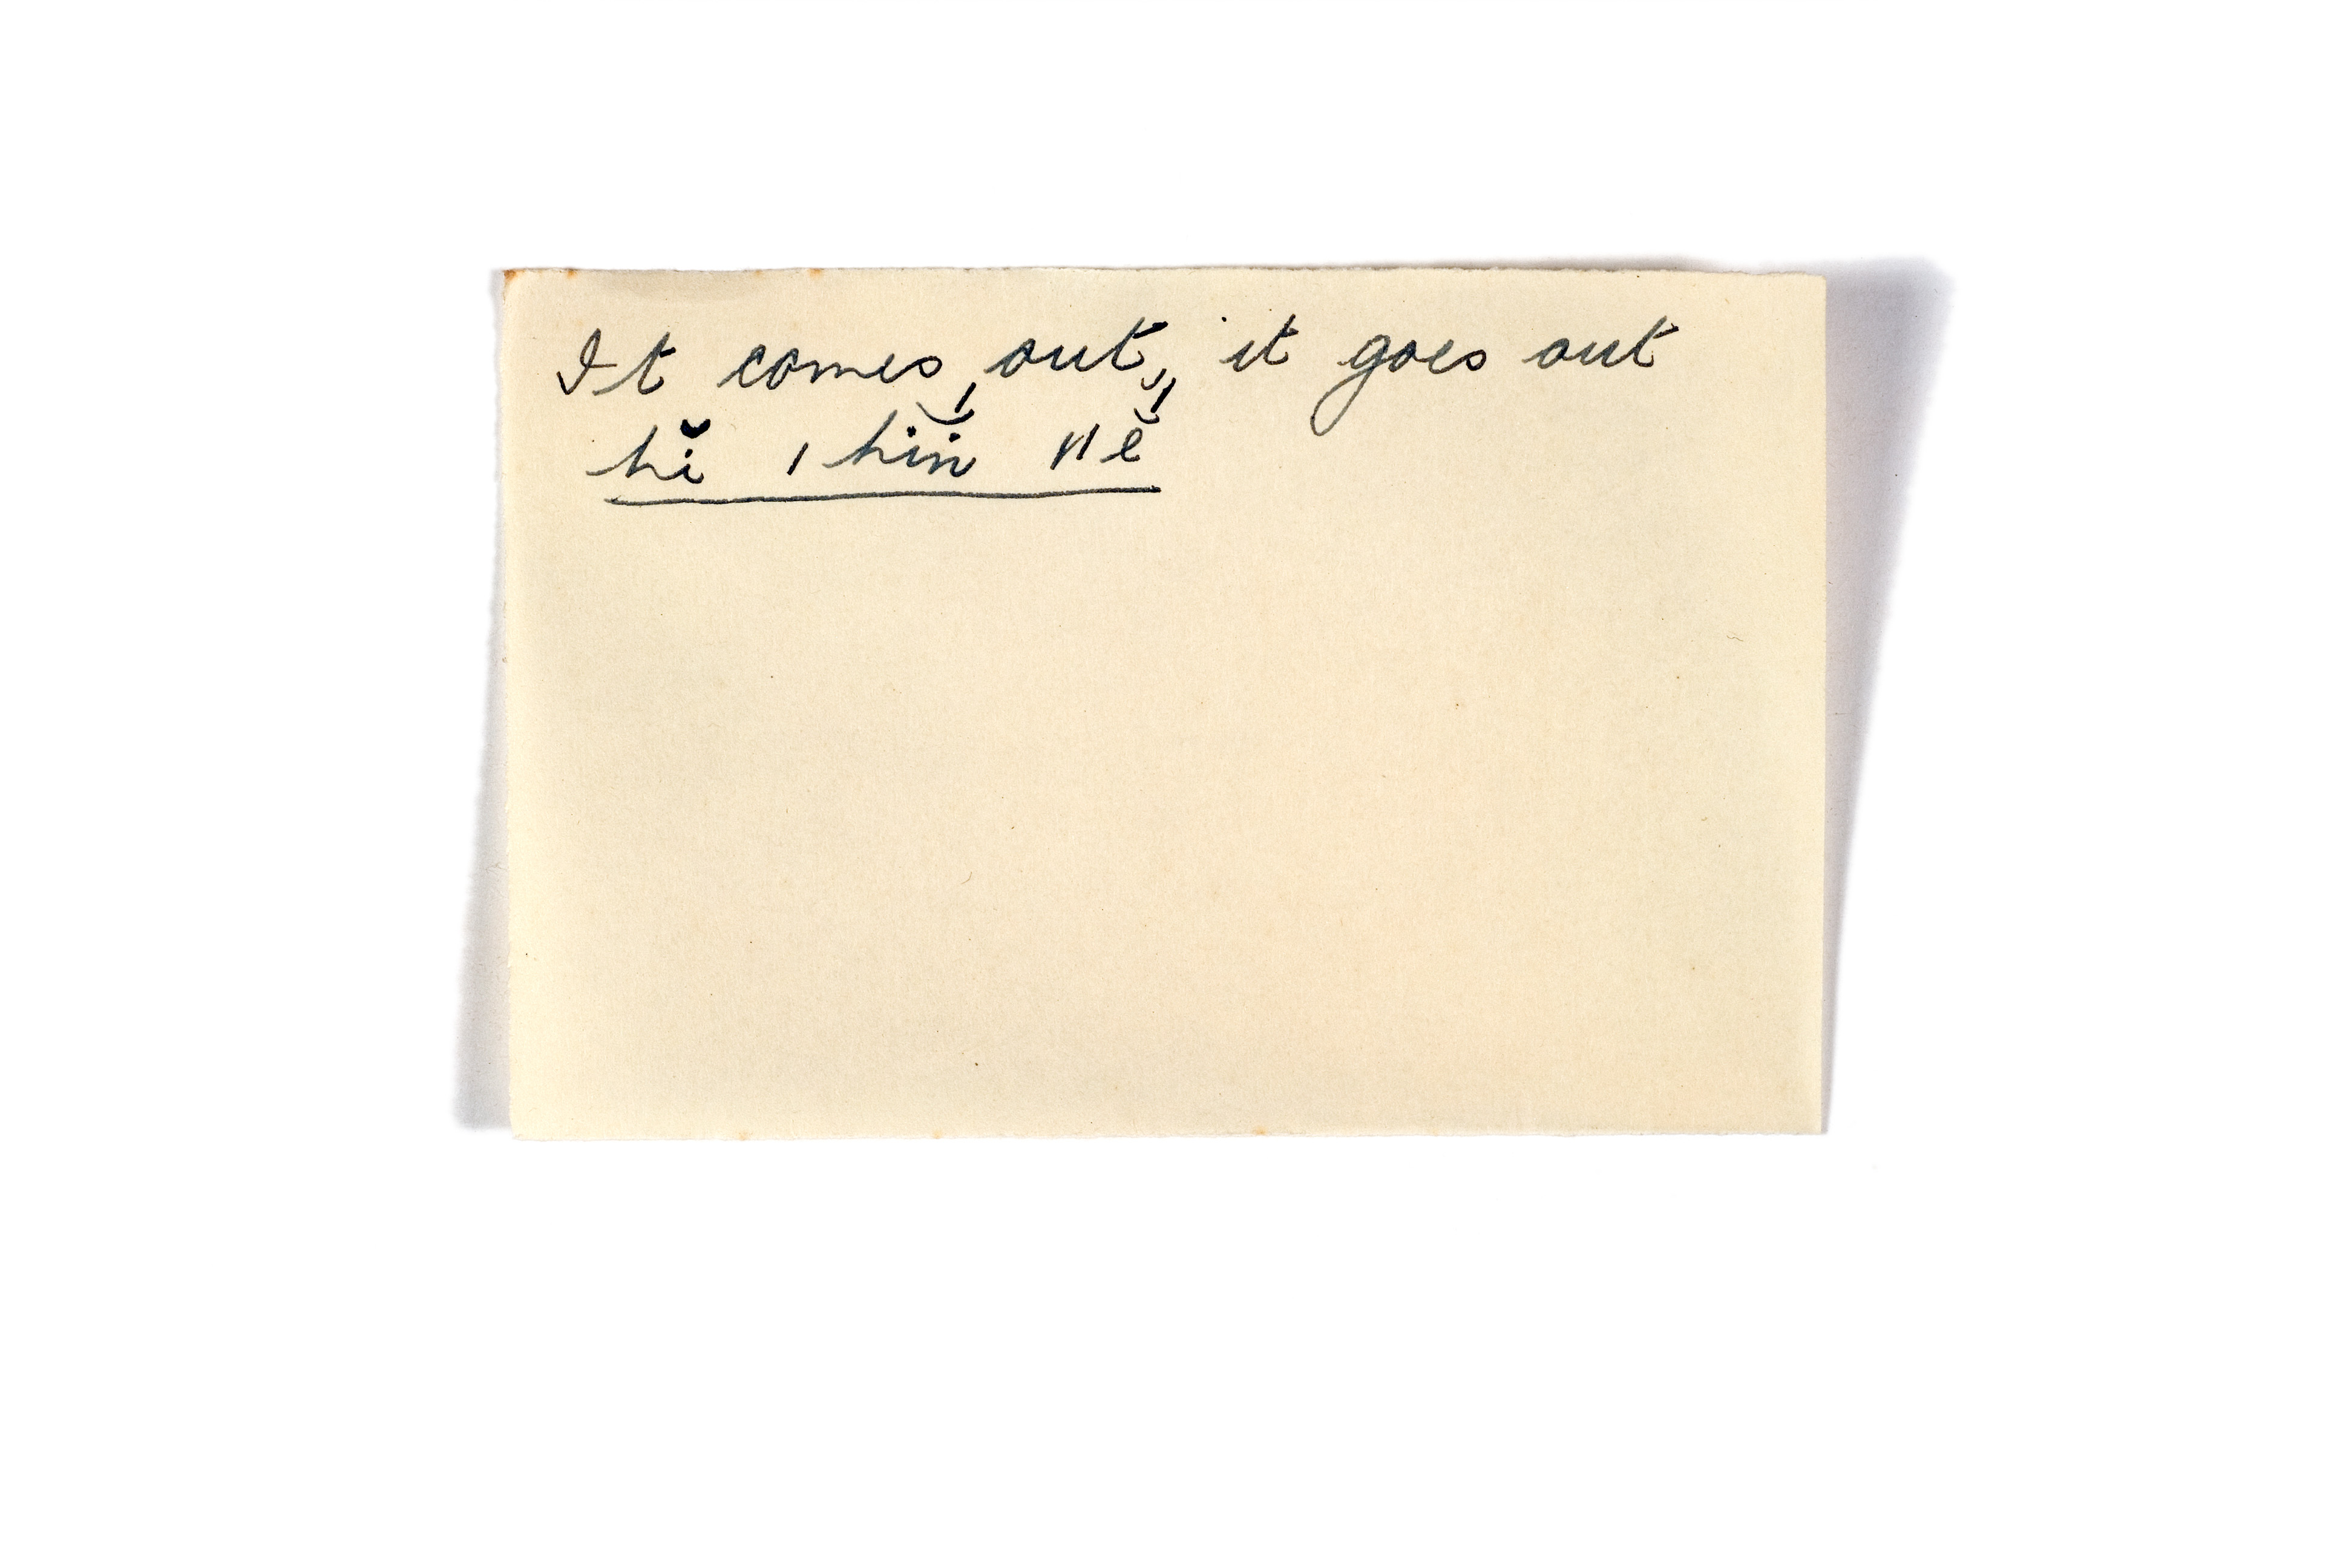 It comes out, it goes out
hĭ ˌhĭń ˌˌĕ̋